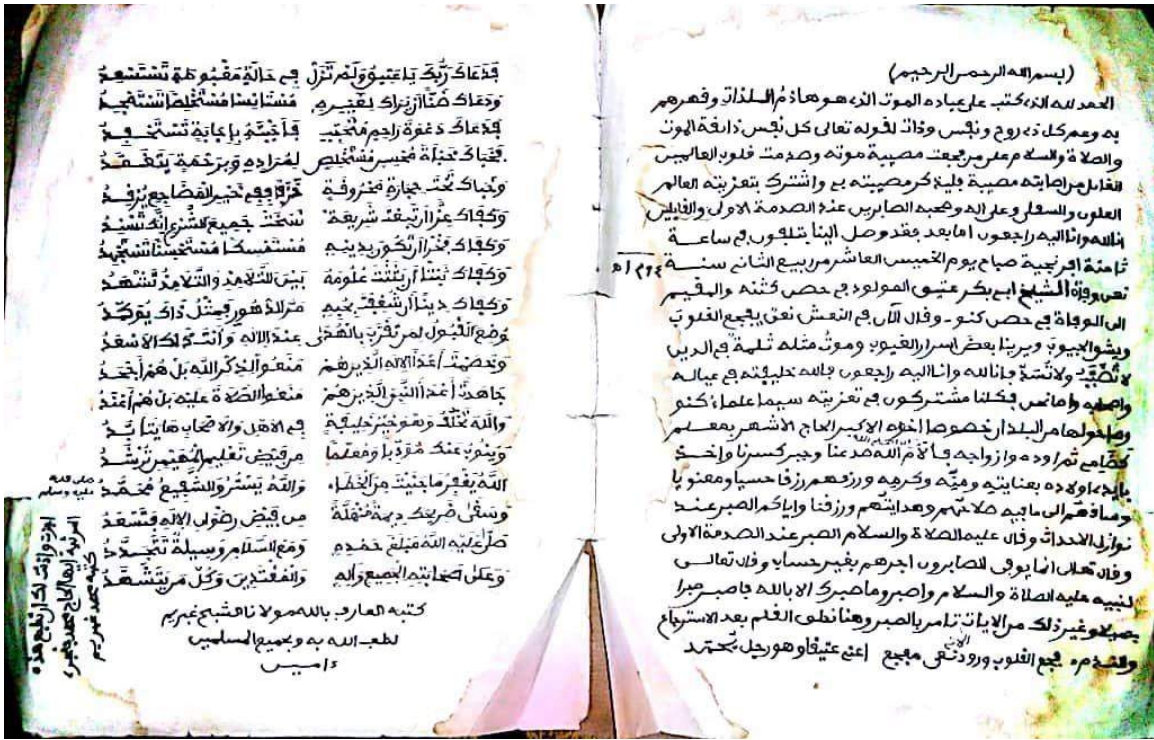 (بسم الله الرحمن الرحيم)
الحمد لله الذي كتب على عباده الموت الذي هو هاذم اللذات وقهرهم
به وعم كل ذي روح ونفس وذات لقوله تعالى كل نفس ذائقة الموت
والصلاة والسلام على من فجعت مصيبة موته وصدمت قلوب العالمين
القائل من اصابته مصيبة فليذكر مصيبته بي واشترك بتعزيته العالم
العلوي والسفلي وعلى اله وصحبه الصابرين عند الصدمة الاولى والقايلين
انا لله وانا اليه راجعون اما بعد فقد وصل الينا بتلفون في ساعة
ثامنة افرنجية صباح يوم الخميس العاشر من ربيع الثاني سنة ١٣٩٤ه
نعي وفاة الشيخ ابي بكر عتيق المولود في حصن كثنه والمقيم
الى الوفاة في حصن كنو - وقال الآن في النعش نعي يفجع القلوب
ويشق الجيوب ويرينا بعض اسرار الغيوب وموت مثله ثلمة في الدين
لا تضبّب ولا تسد فإنا لله وانا اليه راجعون فالله خليفته في عياله
واصحابه واما نحن فكلنا مشتركون في تعزيته سيما علماء كنو
وما حولها من البلدان خصوصا اخوه الاكبر الحاج الاشهر بمعلم
ثم اوده وازواجه فالأم الله صدعنا وجبر كسرنا واخذ
بايدي اولاده بعنايته ومنّه وكرمه ورزقهم رزقا حسيا ومعنويا
وساقهم الى ما فيه صلاحهم وهدايتهم ورزقنا واياكم الصبر عند
نوازل الاحداث وقال عليه الصلاة والسلام الصبر عند الصدمة الاولى
وقال تعالى انما يوفى الصابرون اجرهم بغير حساب وقال تعالى
لنبيه عليه الصلاة والسلام واصبر وما صبرك الا بالله فاصبر صبرا
جميلا وغير ذلك من الايات تامر بالصبر وهنا نطق القلم بعد الاسترجاع
فجع القلوب ورود نعي مفجع اعني عتيقا وهو رجل يُحمد
قد عاك ربك يا عتيق ولم تزل في حالة مقبوطة تستسعد
ودعاك ضنّا أن يراك لغيره مستأنسا مستخلصا تستفجد
قد عاك دعوة راحم متحبب فأجبته بإجابة تستحفد
فحباك حبلة محسن مستخلص لمراده وبرحمة يتغمد
وخباك تحت حجارة محروقة خرقا وفي خير المضاجع يرقد
وكفاك عزّا أن تبعت شريعة نسخت جميع الشرع إنك تسند
وكفاك فخرا أن تكون بدينه مستمسكا مستحسنا تستجهد
وكفاك ثبتا أن بثثت علومه بين التلامذ والتلامذ تشهد
وكفاك دينا أن شغفت بحبه مر الدهور فمثل ذاك يوكّد
وضع القبول لمن تقرب بالهدى عند الإله وأنت ذلك الأسعد
وخصمت أعداء الإله الذين هم منعوا لذكر الله بل هم أجحد
جاهدت أعداء النبي الذين هم منعوا الصلاة عليه بل هم أعند
والله تخلف وهو خير خليفة في الأهل والأصحاب هايتا بد
وينوب عنك مؤدبا ومعلما من فيض تعليم المهيمن ترشد
الله يغفر ما جنيت من الخطاء والله يستر والشفيع محمد صلى الله عليه وسلم
وسقى ضريحك ديمة منهلة من فيض رضوان الإله فتسعد
صلى عليه الله مبلغ حمده ومع السلام وسيلة تتجدد
وعلى صحابته الجميع وآله والمقتدين وكل من يتشهد
كتبه العارف بالله مولانا الشيخ غبريم
لطف الله به وبجميع المسلمين
ءامين
اجزت واذنت لك أن تطبع هذه
المرثية أيها الحاج محمد
كتبه محمد غبريم